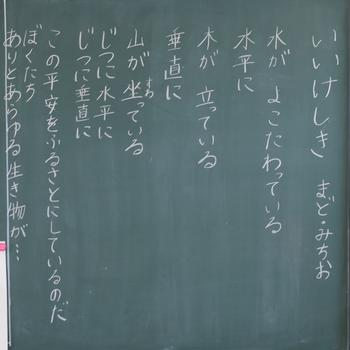 いいけしき まど・みちお
水が よこたわっている
水平に
木が 立っている
垂直に
山が 坐っている
すわ
じつに水平に
じつに垂直に
この平安をふるさとにしているのだ
ぼくたち
ありとあらゆる生き物が…